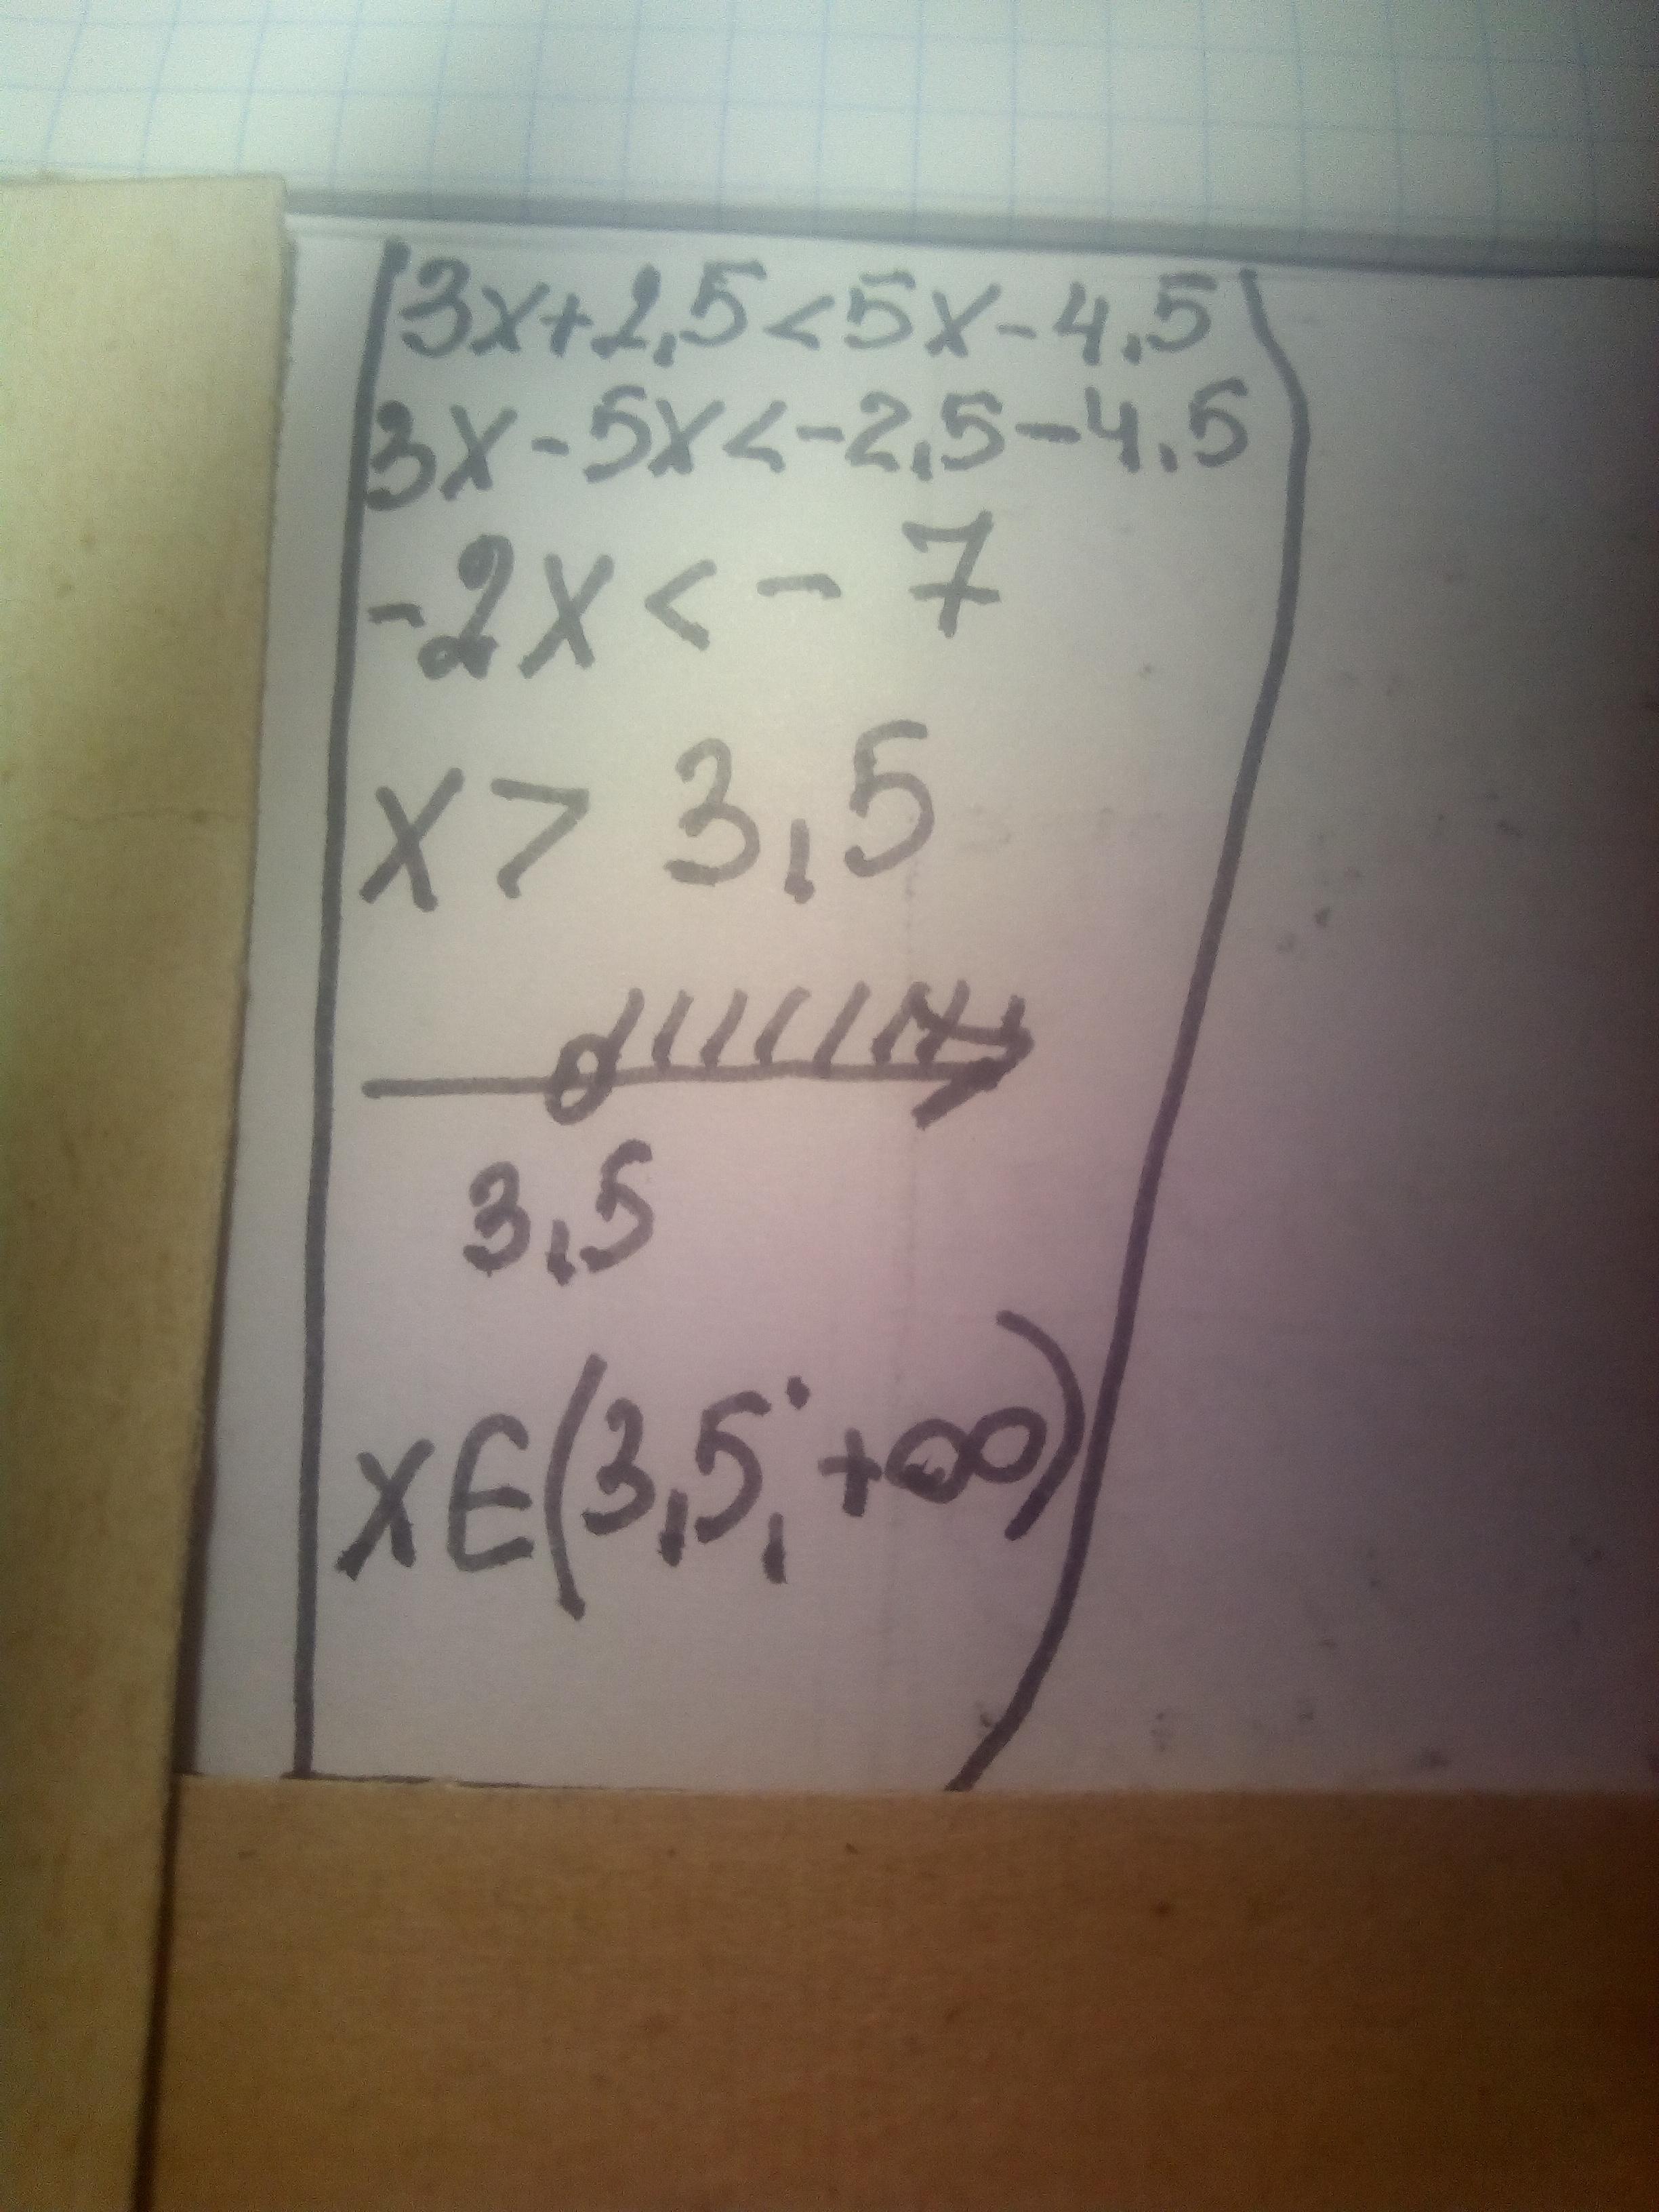 3x+2,5<5x-4,5
3x-5x<-2,5-4,5
-2x<-7
x>3,5
3,5
x∈(3,5;+∞)